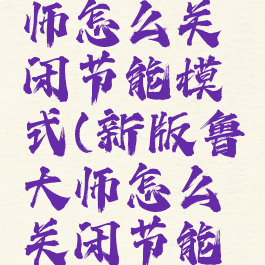 师怎么关
闭节能模
式(新版鲁
大师怎么
关闭节能